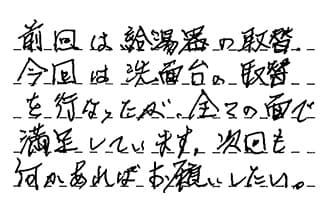 前回は給湯器の取替.
今回は洗面台の取替
を行なったが、全ての面で
満足しています。次回も
何かあればお願いしたい。